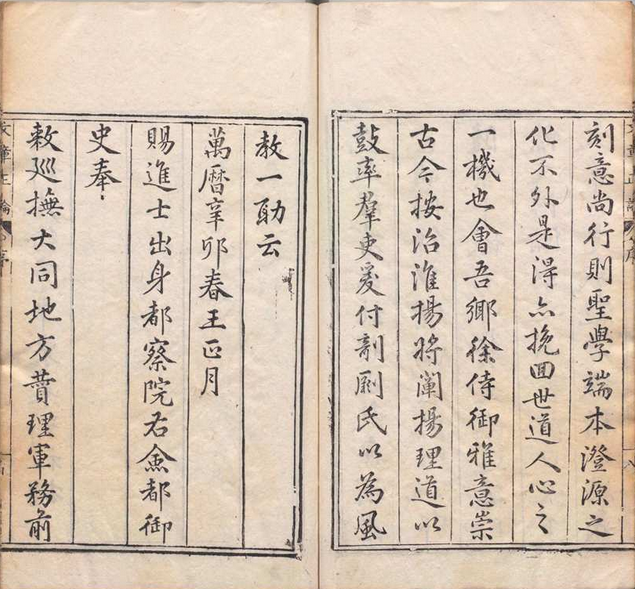 刻意尚行則聖學端本澄源之
化不外是得亦挽回世道人心之
一機也會吾鄉徐侍御雅意崇
古今按治淮揚將闡揚理道以
鼓率羣吏爰付剞劂氏以為風
教一助云
萬曆辛卯春王正月
賜進士出身都察院右僉都御
史奉
敕廵撫大同地方贊理軍務前
文章正論
序